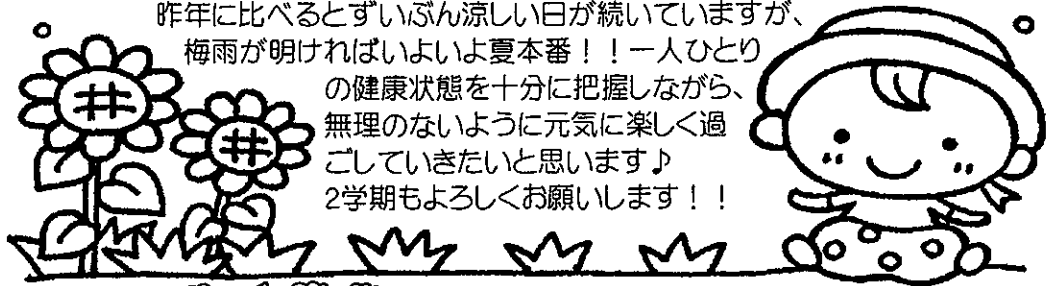 昨年に比べるとずいぶん涼しい日が続いていますが、
梅雨が明ければいよいよ夏本番！！一人ひとり
の健康状態を十分に把握しながら、
無理のないように元気に楽しく過
ごしていきたいと思います♪
2学期もよろしくお願いします！！